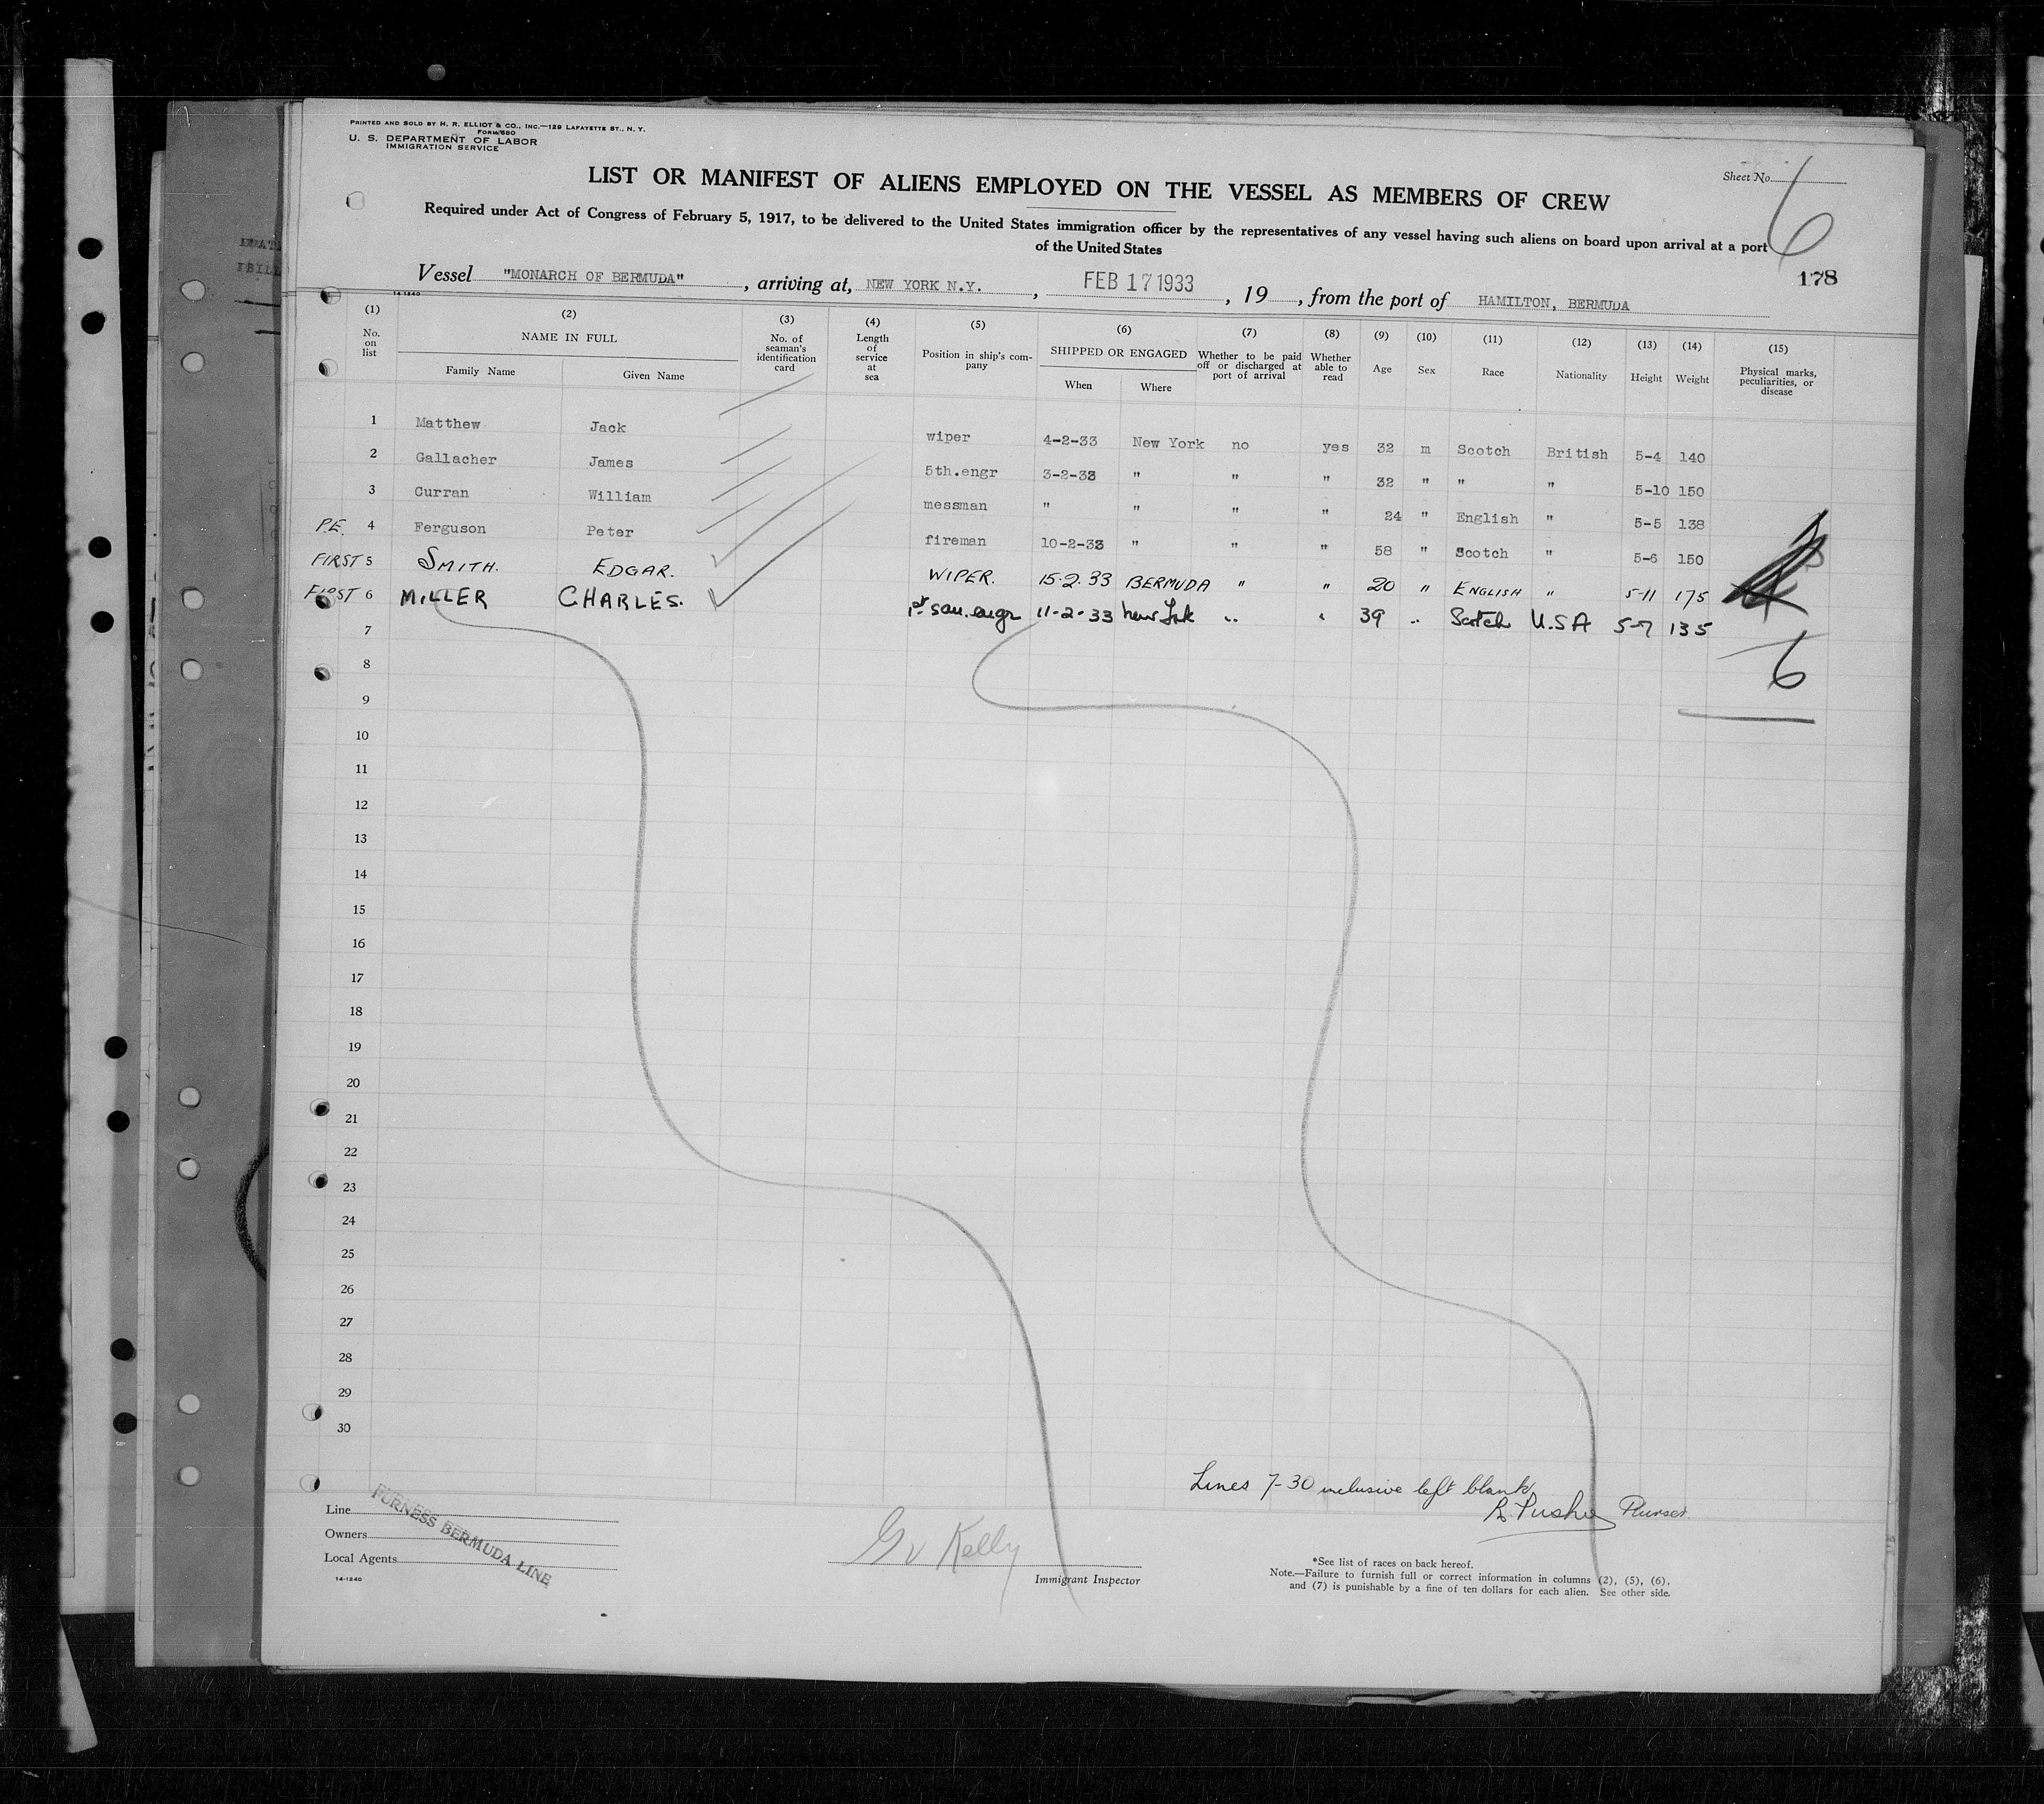 PRINTED AND SOLD BY H. R. ELLIOT & CO., INC.—129 LAFAYETTE ST., N. Y.
FORM 680
U. S. DEPARTMENT OF LABOR
IMMIGRATION SERVICE
Sheet No. 6
LIST OR MANIFEST OF ALIENS EMPLOYED ON THE VESSEL AS MEMBERS OF CREW
Required under Act of Congress of February 5, 1917, to be delivered to the United States immigration officer by the representatives of any vessel having such aliens on board upon arrival at a port
of the United States
178
Vessel "MONARCH OF BERMUDA", arriving at, NEW YORK N.Y., FEB 17 1933, 19 , from the port of HAMILTON, BERMUDA
14-1240
(1) (2) (3) (4) (5) (6) (7) (8) (9) (10) (11) (12) (13) (14) (15)
No. on list NAME IN FULL No. of seaman's identification card Length of service at sea Position in ship's company SHIPPED OR ENGAGED Whether to be paid off or discharged at port of arrival Whether able to read Age Sex Race Nationality Height Weight Physical marks, peculiarities, or disease
Family Name Given Name When Where
1 Matthew Jack wiper 4-2-33 New York no yes 32 m Scotch British 5-4 140
2 Gallacher James 5th.engr 3-2-33 " " " 32 " " " 5-10 150
3 Curran William messman " " " " 24 " English " 5-5 138
P.E. 4 Ferguson Peter fireman 10-2-33 " " " 58 " Scotch " 5-6 150
FIRST 5 SMITH. EDGAR. WIPER. 15.2.33 BERMUDA " " 20 " ENGLISH " 5-11 175
FIRST 6 MILLER CHARLES. 1st San. engr 11-2-33 New York " " 39 " Scotch U.S.A 5-7 135
7
6
8
9
10
11
12
13
14
15
16
17
18
19
20
21
22
23
24
25
26
27
28
29
30
Lines 7-30 inclusive left blank
Purser
Line
Owners
Local Agents
FURNESS BERMUDA LINE
14-1240
Kelly
Immigrant Inspector
*See list of races on back hereof.
Note.—Failure to furnish full or correct information in columns (2), (5), (6),
and (7) is punishable by a fine of ten dollars for each alien. See other side.